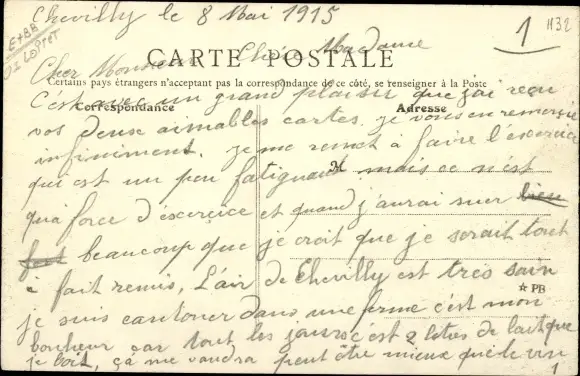 Chevilly le 8 Mai 1915
1
1132
E+BB
DS LOIRET
CARTE POSTALE
Cher Monsieur Chère Madame
Certains pays étrangers n'acceptant pas la correspondance de ce côté, se renseigner à la Poste
C'est avec un grand plaisir que j'ai reçu
Correspondance
Adresse
vos deux aimables cartes. je vous en remercie
infiniment. je me remet à faire l'exercice
M
qui est un peu fatiguant mais ce n'est
qu'a force d'exercice et quand j'aurai suer bien
fort beaucoup que je croit que je serait tout
à fait remis, L'air de Chevilly est très sain
★ PB
je suis cantoner dans une ferme c'est mon
bonheur car tout les jours c'est 2 litres de lait que
je boit, ça me vaudra peut être mieux que le vin
1